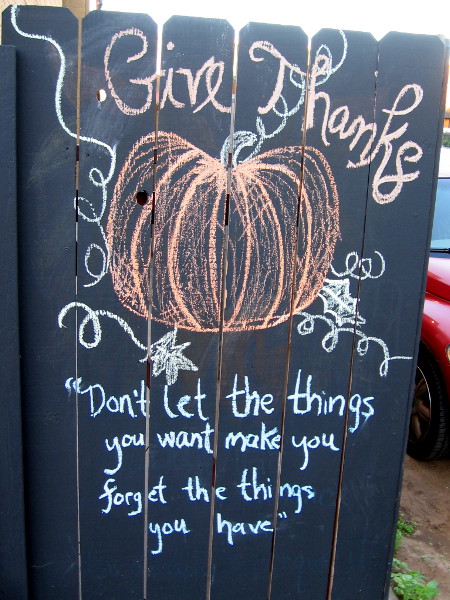 Give Thanks
"Don't let the things
you want make you
forget the things
you have"